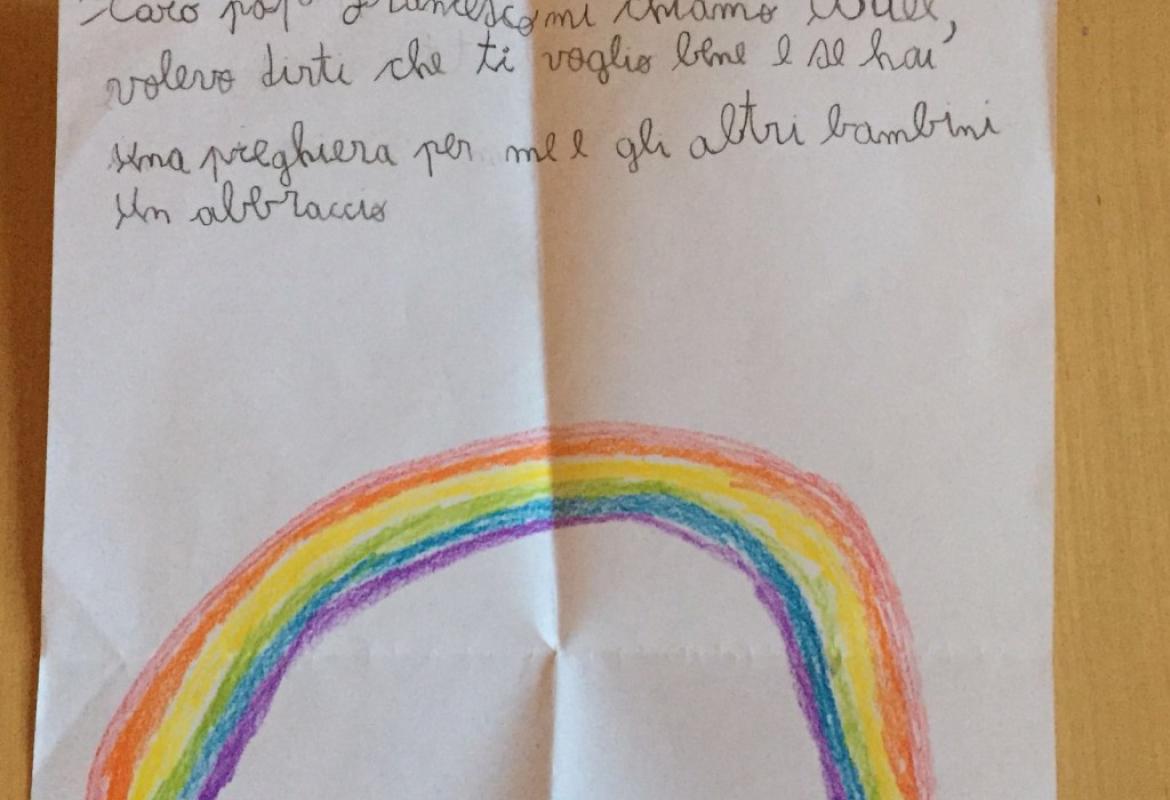 Caro papa Francesco mi chiamo
volevo dirti che ti voglio bene e se hai
una preghiera per me e gli altri bambini
Un abbraccio